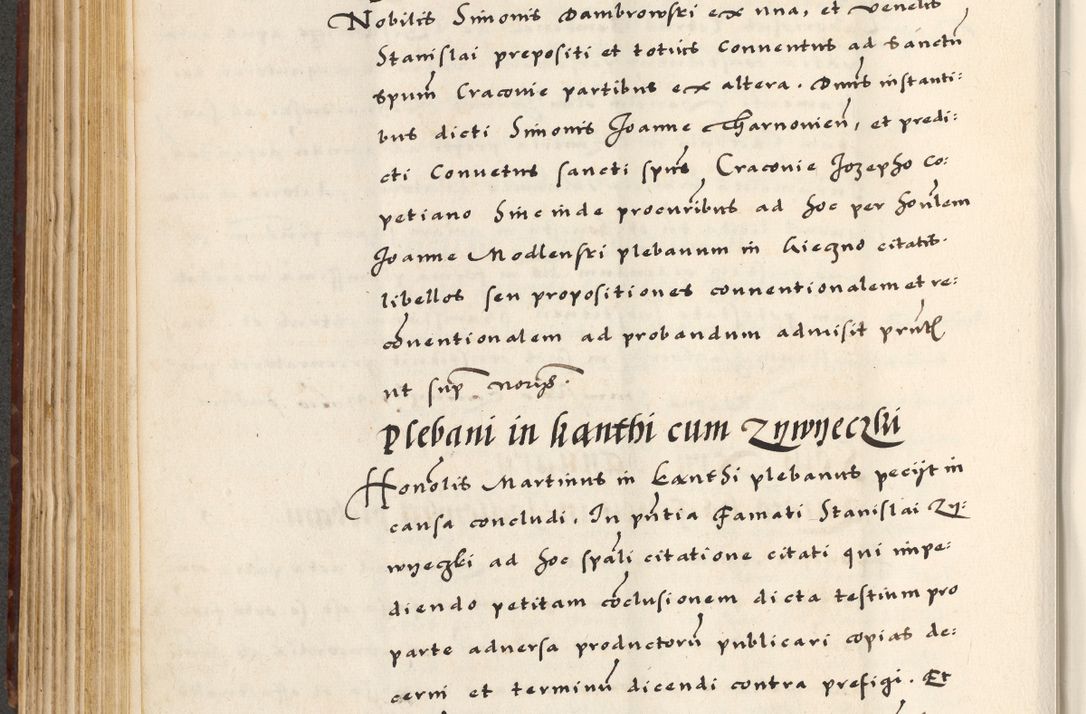 Nobilis Simonis Dambrowski ex una, et venelis
Stanislai prepositi et totius Conventus ad Sanctũ
spum̃ Cracovie partibus ex altera. Dnis instanti:
bus dicti Simonis Joanne Tharnovieñ, et predi:
cti Convetus sancti spũs Cracovie Jozepho Co:
petiano Sincinde procuribus ad hoc per honlem
Joanne Modlenski plebanum in Giegno citatis.
libellos seu propositiones conventionalem et re:
cõventionalem ad probandum admisit
ut sup̃
Plebani in kanthi cum Zywyeczki
Honõlis Martinus in kanthi plebanus peciit in
causa concludi. In pñtia Famati Stanislai Zy:
wyeczki ad hoc spãli citatione citati qui impe:
diendo petitam cõclusionem dicta testium pro
parte adversa productorũ publicari copias de:
cerni et terminũ dicendi contra prefigi. Et